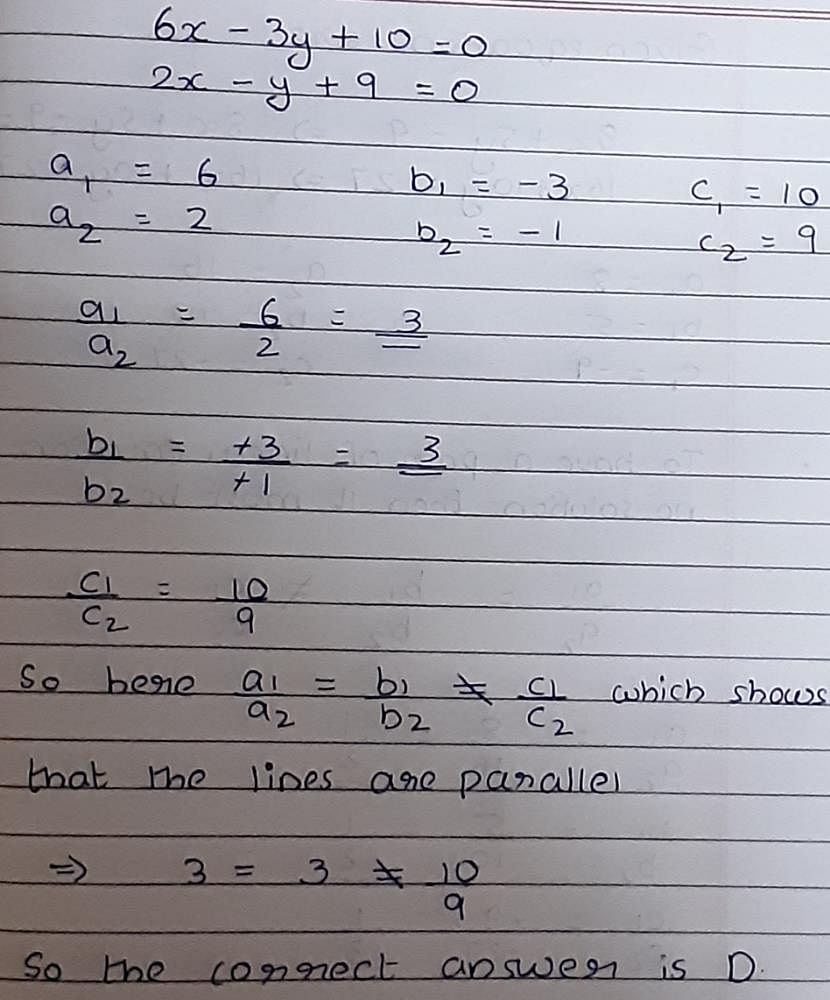 6x - 3y + 10 = 0
2x - y + 9 = 0
a₁ = 6 b₁ = -3 c₁ = 10
a₂ = 2 b₂ = -1 c₂ = 9
a₁/a₂ = 6/2 = 3
b₁/b₂ = +3/+1 = 3
c₁/c₂ = 10/9
So here a₁/a₂ = b₁/b₂ ≠ c₁/c₂ which shows
that the lines are parallel
⇒ 3 = 3 ≠ 10/9
So the correct answer is D.